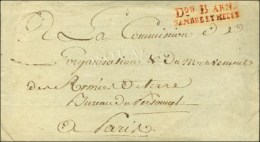 Don B ARM.
SAMBRE ET MEUSE
A La Commission de
Organisation & du Mouvement
des Armées de terre
Bureau du Personnel
a Paris